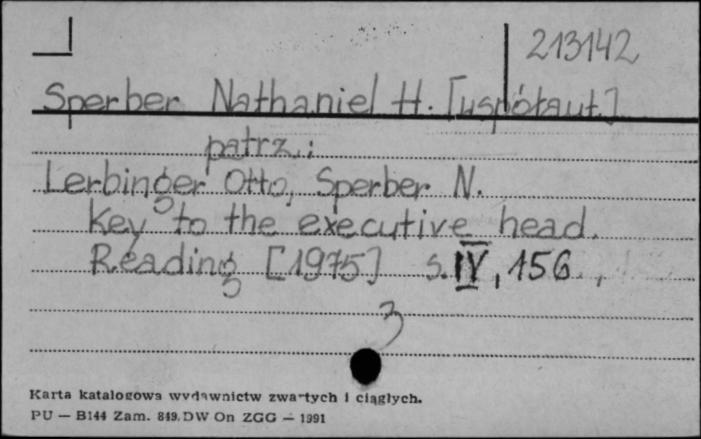 213142
Sperber Nathaniel H. [współaut.]
patrz:
Lerbinger Otto, Sperber N.
Key to the executive head.
Reading [1975] s. IV, 156.,
3
Karta katalogowa wydawnictw zwartych i ciągłych.
PU — B144 Zam. 849. DW On ZGG — 1991